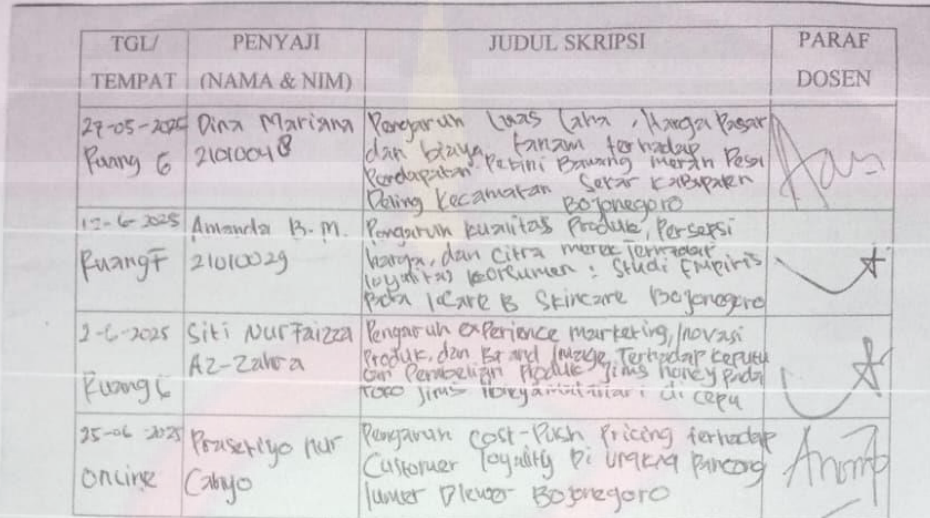 TGL/ PENYAJI JUDUL SKRIPSI PARAF
TEMPAT (NAMA & NIM) DOSEN
27-05-2025
Ruang 6
Dina Mariana
21010048
Pengaruh Luas Laha, Harga Pasar
dan biaya tanam terhadap
Pendapatan Petini Bawang merah Desa
Deling Kecamatan Sekar Kabupaten
Bojonegoro
12-6-2025
Ruang F
Amanda B.M.
21010029
Pengaruh kualitas Produk, Persepsi
harga, dan Citra merek Terhadap
loyalitas konsumen : Studi Empiris
Pada B Skincare Bojonegoro
2-6-2025
Ruang
Siti Nur Faizza
Az-Zahra
Pengaruh experience marketing, Inovasi
Produk, dan Brand Image Terhadap keputu
Pembelian Produk Jims honey pada
Toko Jims di cepu
25-06-2025
Online
Prasetiyo nur
Cahyo
Pengaruh cost-Push Pricing terhadap
Customer loyality Di Pancong
lumer Bojonegoro